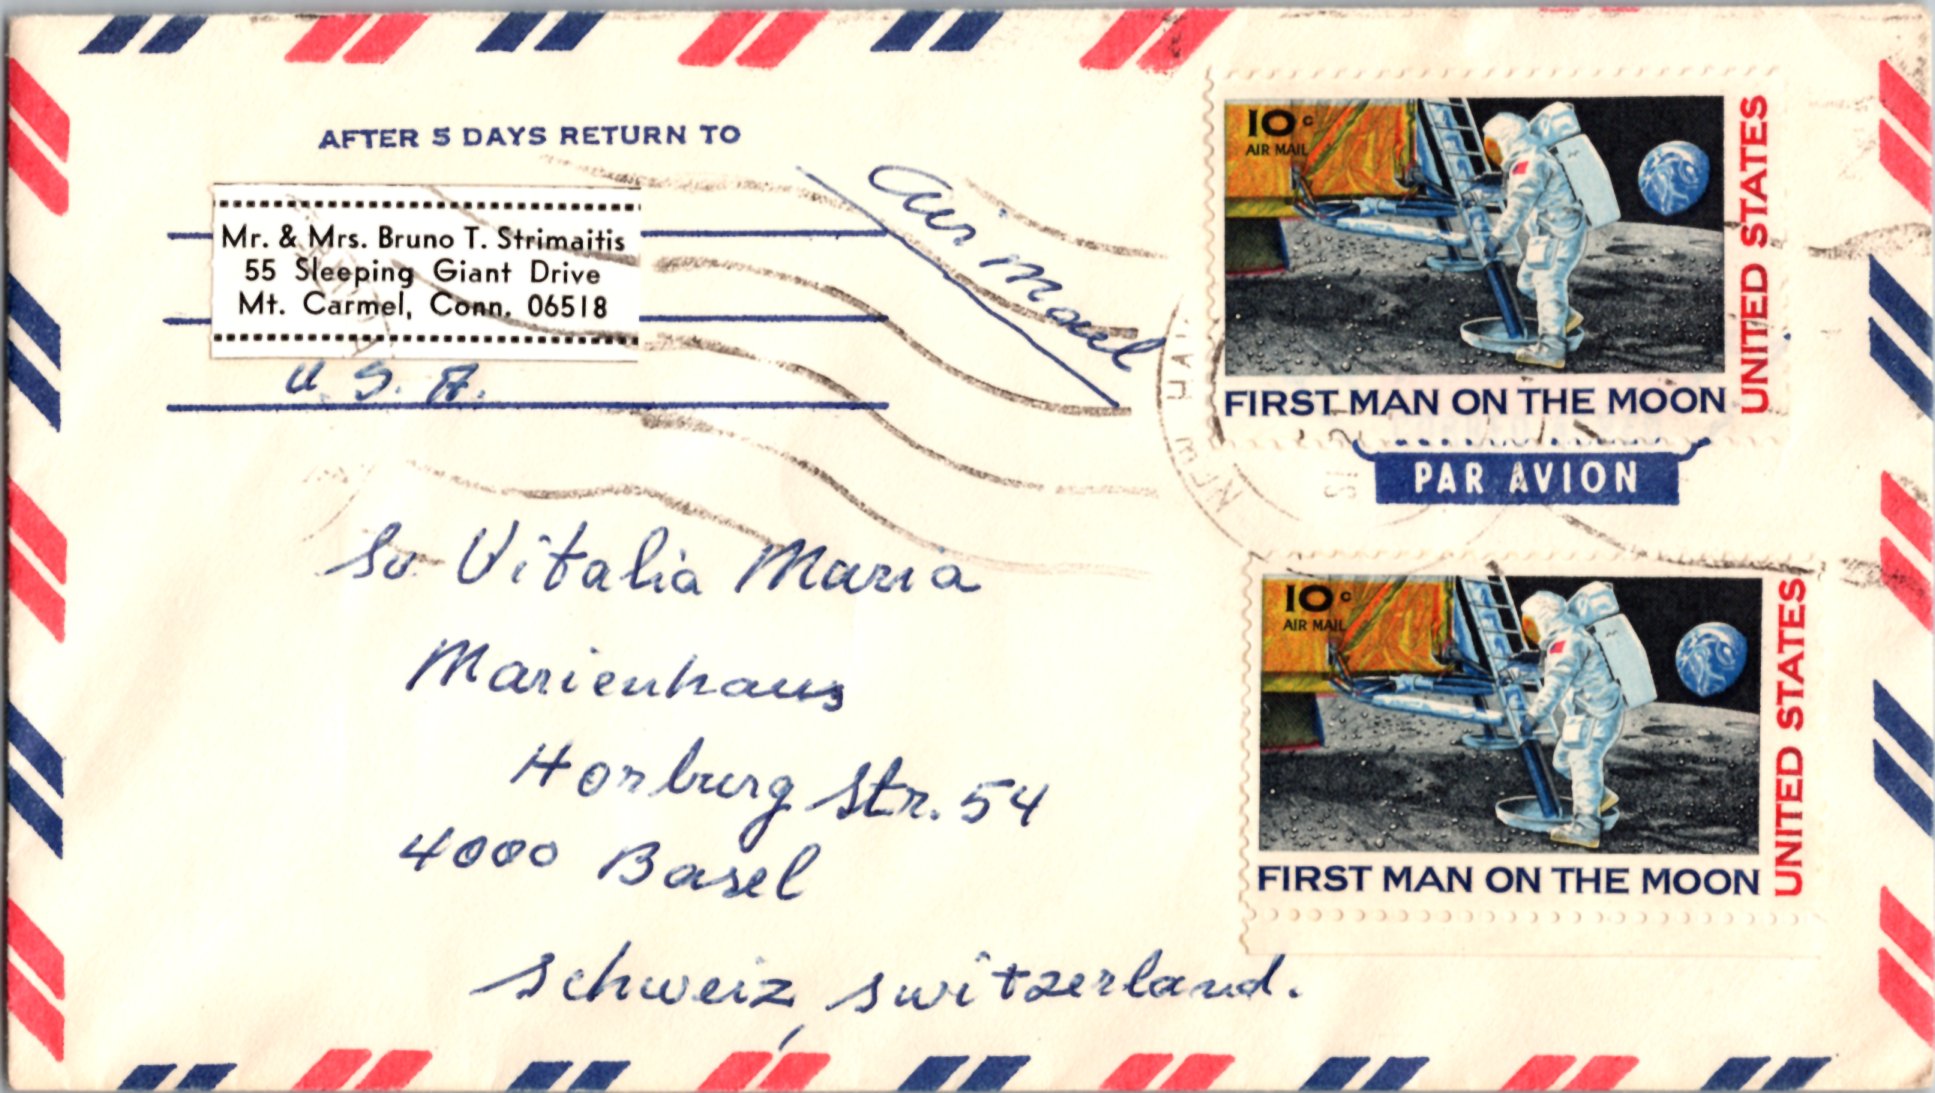 AFTER 5 DAYS RETURN TO
Mr. & Mrs. Bruno T. Strimaitis
55 Sleeping Giant Drive
Mt. Carmel, Conn. 06518
U.S.A.
Air Mail
10c
AIR MAIL
UNITED STATES
FIRST MAN ON THE MOON
PAR AVION
Sv Vitalia Maria
Marienhaus
Horburg Str. 54
4000 Basel
Schweiz, Switzerland.
10c
AIR MAIL
UNITED STATES
FIRST MAN ON THE MOON